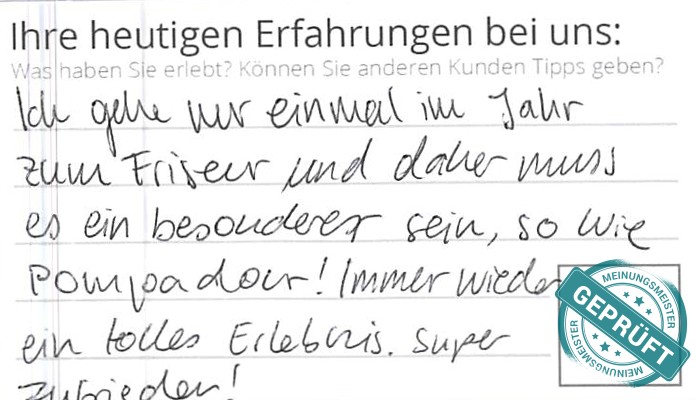 Ihre heutigen Erfahrungen bei uns:
Was haben Sie erlebt? Können Sie anderen Kunden Tipps geben?
Ich gehe nur einmal im Jahr
zum Friseur und daher muss
es ein besonderer sein, so wie
Pompadour! Immer wieder
ein tolles Erlebnis. Super
zufrieden!
MEINUNGSMEISTER
GEPRÜFT
MEINUNGSMEISTER